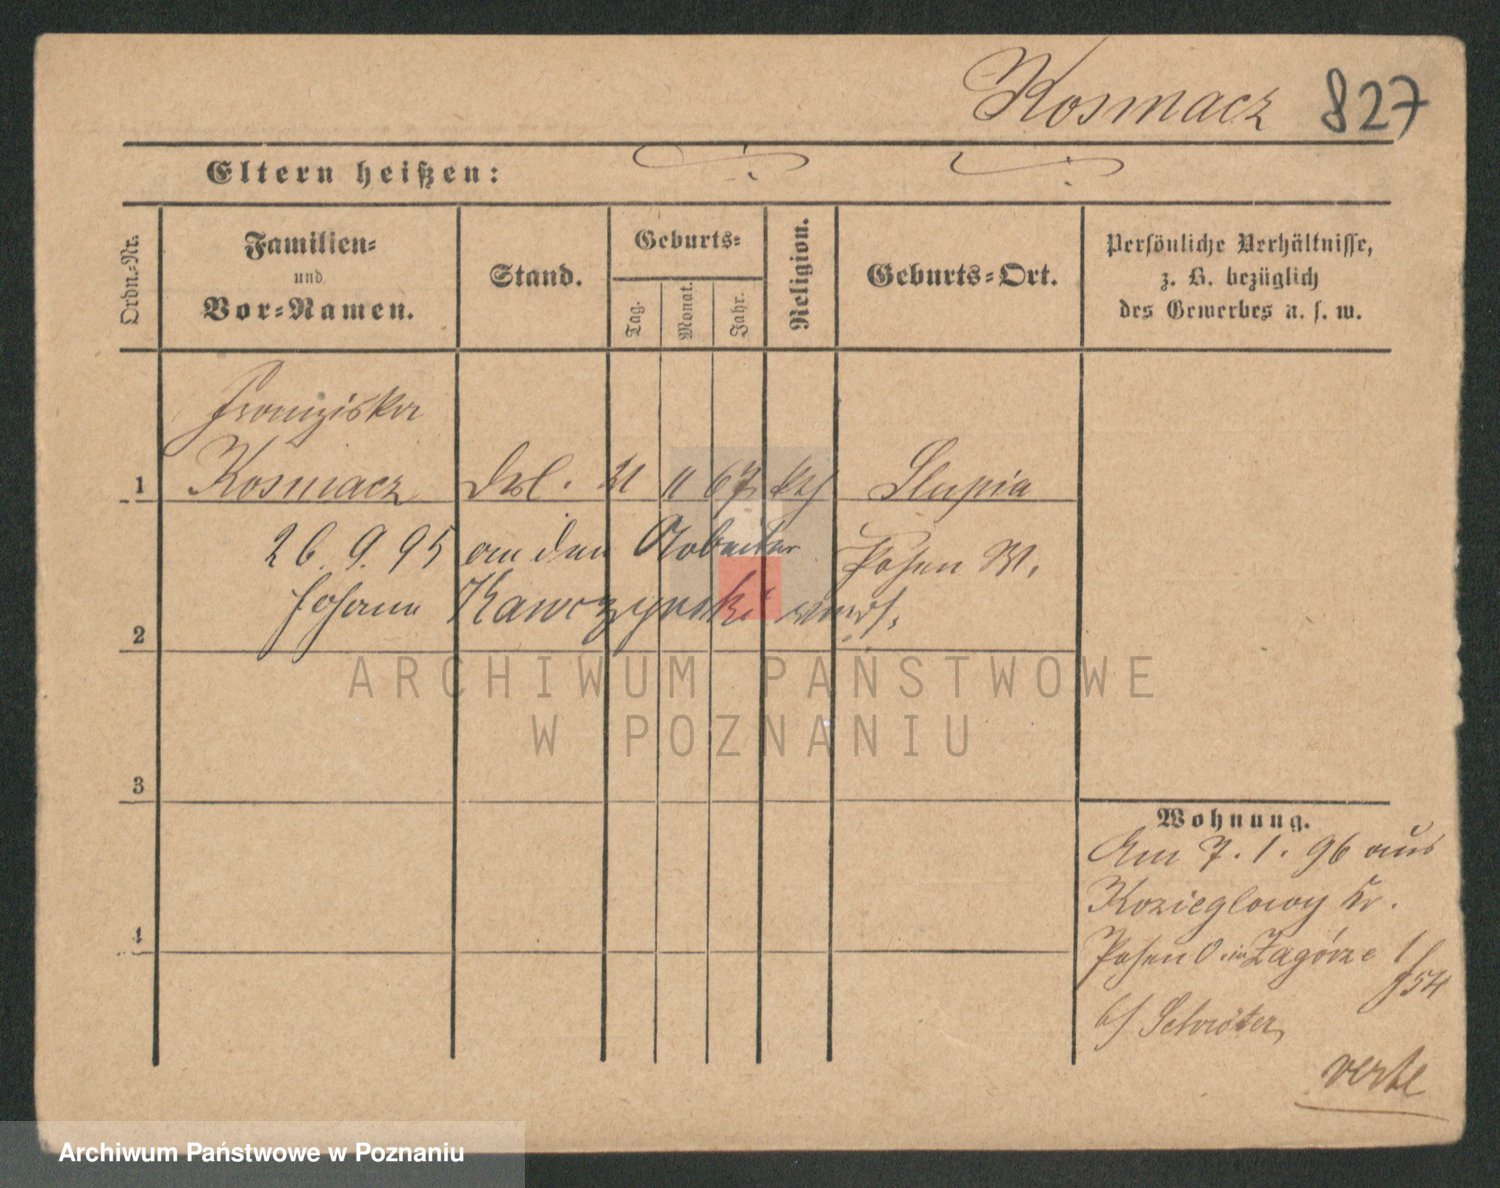 Kosmacz 827
Eltern heißen:
Ordn.-Nr.
Familien-
und
Vor-Namen.
Stand.
Geburts-
Tag.
Monat.
Jahr.
Religion.
Geburts-Ort.
Persönliche Verhältnisse,
z. B. bezüglich
des Gewerbes u. s. w.
Franziska
1 Kosmacz 11 67 Slupia
26.9.95 an den Arbeiter Posen W.
Johann Kawczynski verh.
2
3
4
Wohnung.
Am 7.1.96 aus
Kozieglowy Kr.
Posen O. in Zagórze
b/ Schröter
verte
ARCHIWUM PAŃSTWOWE
W POZNANIU
Archiwum Państwowe w Poznaniu